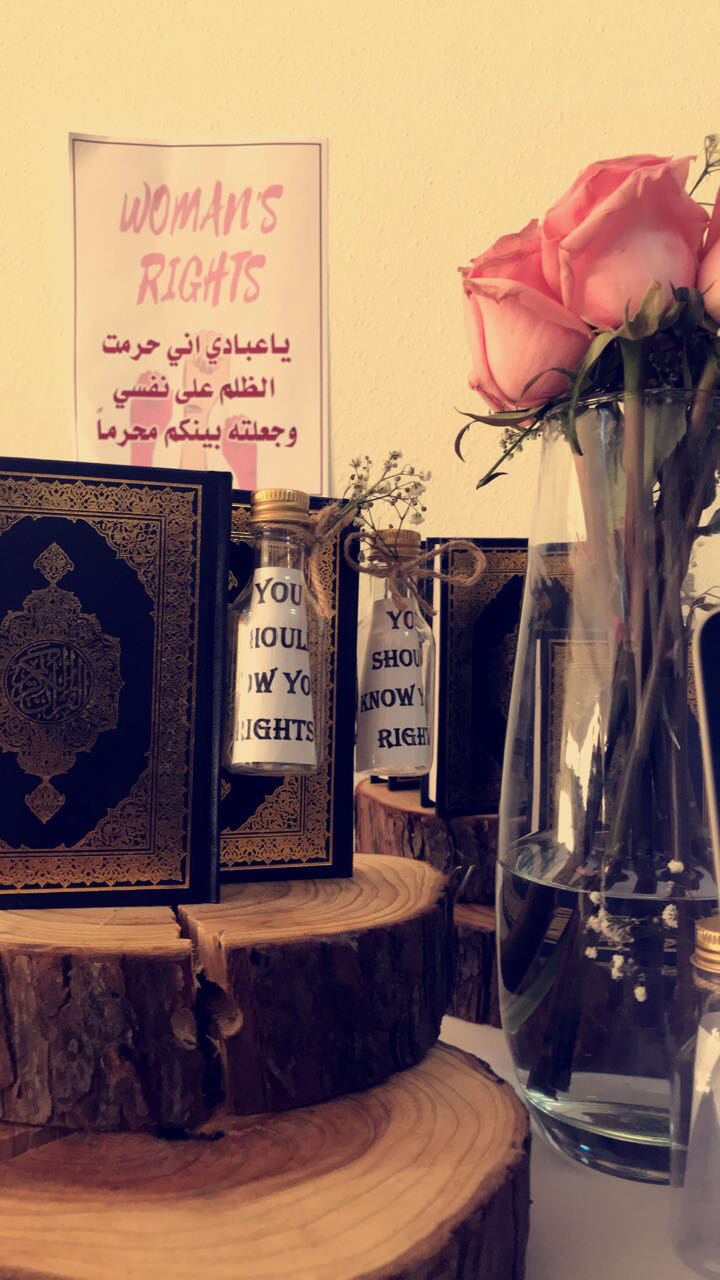 WOMAN'S
RIGHTS
ياعبادي اني حرمت
الظلم على نفسي
وجعلته بينكم محرماً
القرآن الكريم
YOU
HOUL
OW YO
RIGHTS
YO
SHOU
KNOW Y
RIGH